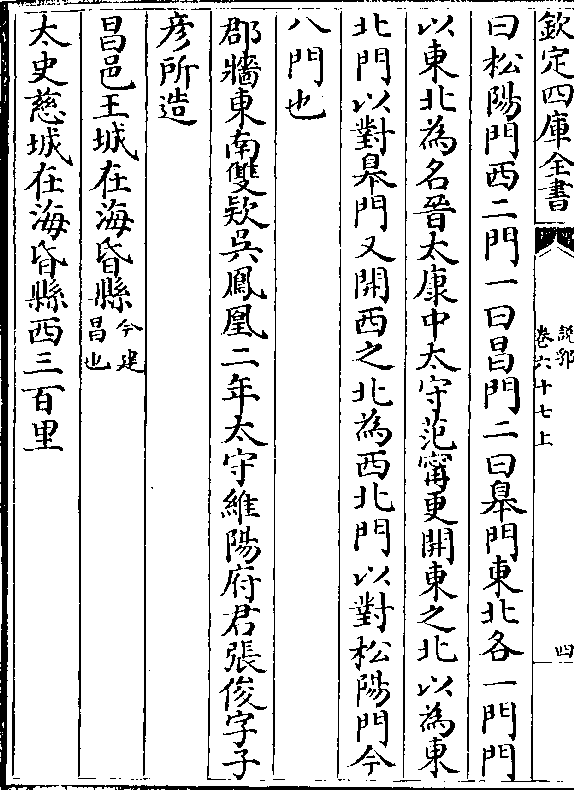 欽定四庫全書
說郛
卷六十七上
四
曰松陽門西二門一曰昌門二曰皋門東北各一門門
以東北為名晉太康中太守范甯更開東之北以為東
北門以對皋門又開西之北為西北門以對松陽門今
八門也
郡牆東南雙欵吳鳳凰二年太守維陽府君張俊字子
彥所造
昌邑王城在海昏縣今建昌也
太史慈城在海昏縣西三百里